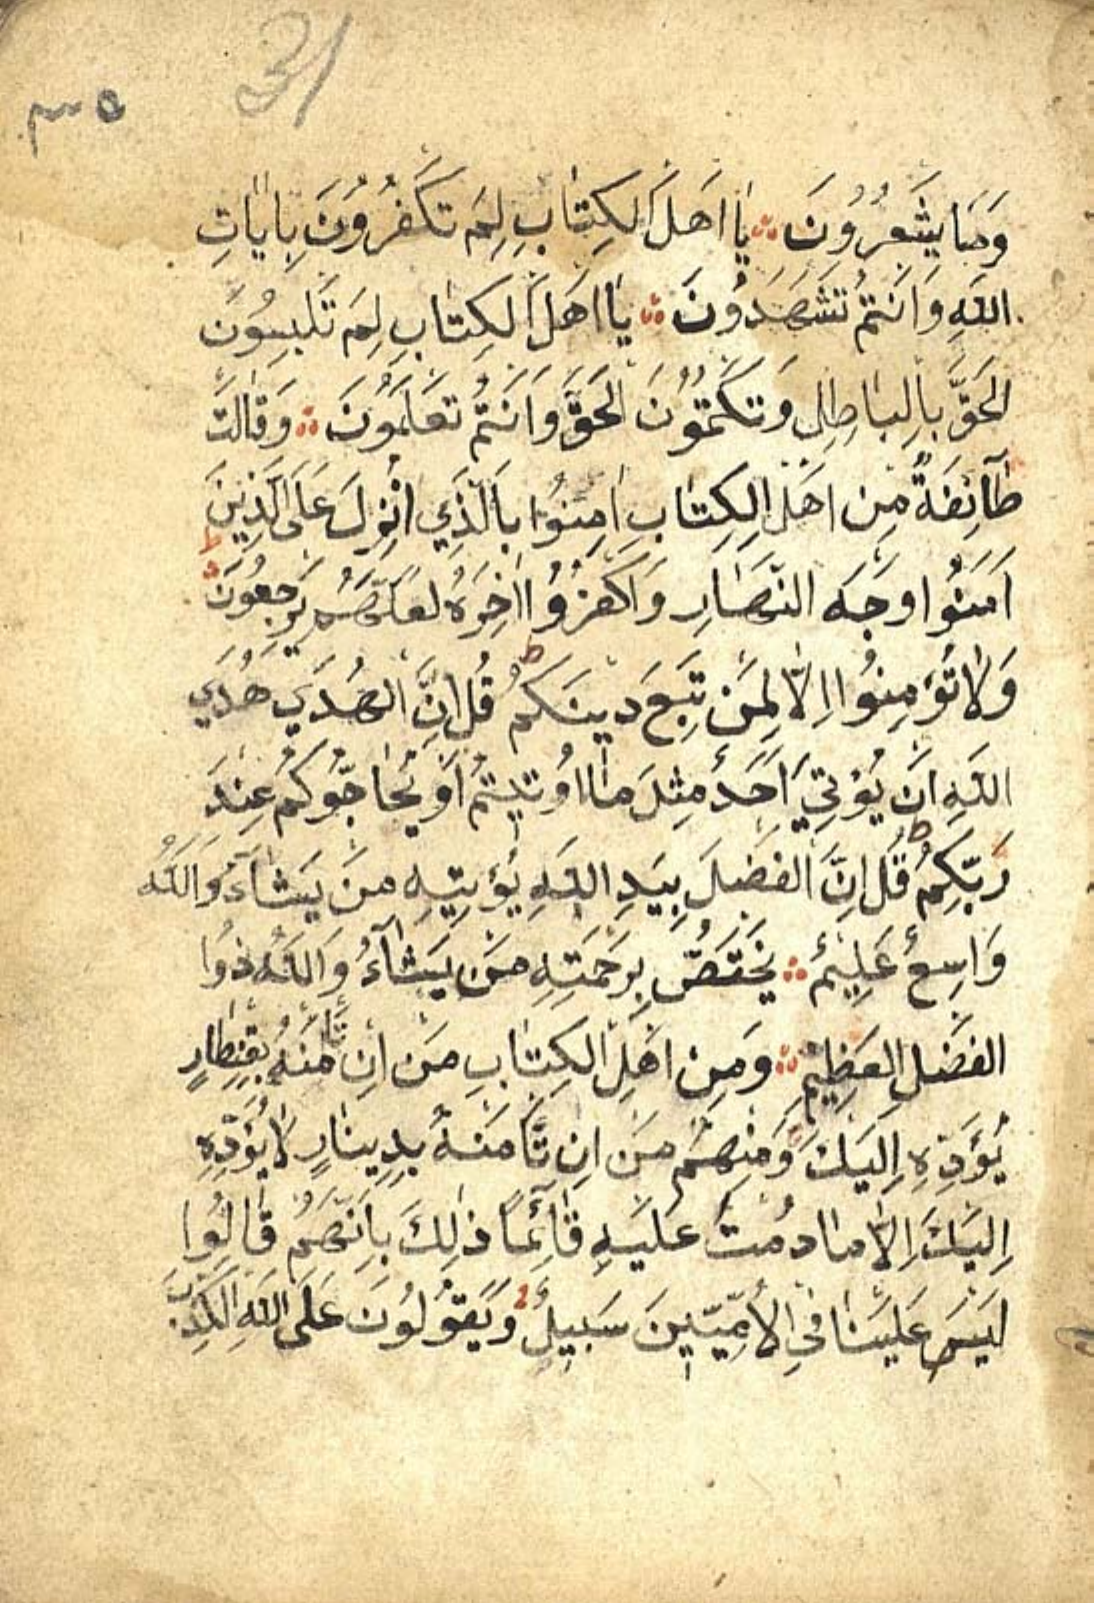 31
وَمَا يَشْعُرُونَ ۞ يَا اَهْلَ الْكِتَابِ لِمَ تَكْفُرُونَ بِاٰيَاتِ
اللّٰهِ وَاَنْتُمْ تَشْهَدُونَ ۞ يَا اَهْلَ الْكِتَابِ لِمَ تَلْبِسُونَ
الْحَقَّ بِالْبَاطِلِ وَتَكْتُمُونَ الْحَقَّ وَاَنْتُمْ تَعْلَمُونَ ۞ وَقَالَتْ
طَآئِفَةٌ مِنْ اَهْلِ الْكِتَابِ اٰمِنُوا بِالَّذِي اُنْزِلَ عَلَى الَّذِينَ
اٰمَنُوا وَجْهَ النَّهَارِ وَاكْفُرُوا اٰخِرَهُ لَعَلَّهُمْ يَرْجِعُونَ
وَلَا تُؤْمِنُوا اِلَّا لِمَنْ تَبِعَ دِينَكُمْ ط قُلْ اِنَّ الْهُدٰي هُدَي
اللّٰهِ اَنْ يُؤْتٰي اَحَدٌ مِثْلَ مَا اُوتِيتُمْ اَوْ يُحَاجُّوكُمْ عِنْدَ
رَبِّكُمْ ط قُلْ اِنَّ الْفَضْلَ بِيَدِ اللّٰهِ يُؤْتِيهِ مَنْ يَشَآءُ وَاللّٰهُ
وَاسِعٌ عَلِيمٌ ۞ يَخْتَصُّ بِرَحْمَتِهِ مَنْ يَشَآءُ وَاللّٰهُ ذُوا
الْفَضْلِ الْعَظِيمِ ۞ وَمِنْ اَهْلِ الْكِتَابِ مَنْ اِنْ تَأْمَنْهُ بِقِنْطَارٍ
يُؤَدِّهِ اِلَيْكَ وَمِنْهُمْ مَنْ اِنْ تَأْمَنْهُ بِدِينَارٍ لَا يُؤَدِّهِ
اِلَيْكَ اِلَّا مَا دُمْتَ عَلَيْهِ قَآئِمًا ذٰلِكَ بِاَنَّهُمْ قَالُوا
لَيْسَ عَلَيْنَا فِي الْاُمِّيِّينَ سَبِيلٌ وَيَقُولُونَ عَلَى اللّٰهِ الْكَذِبَ